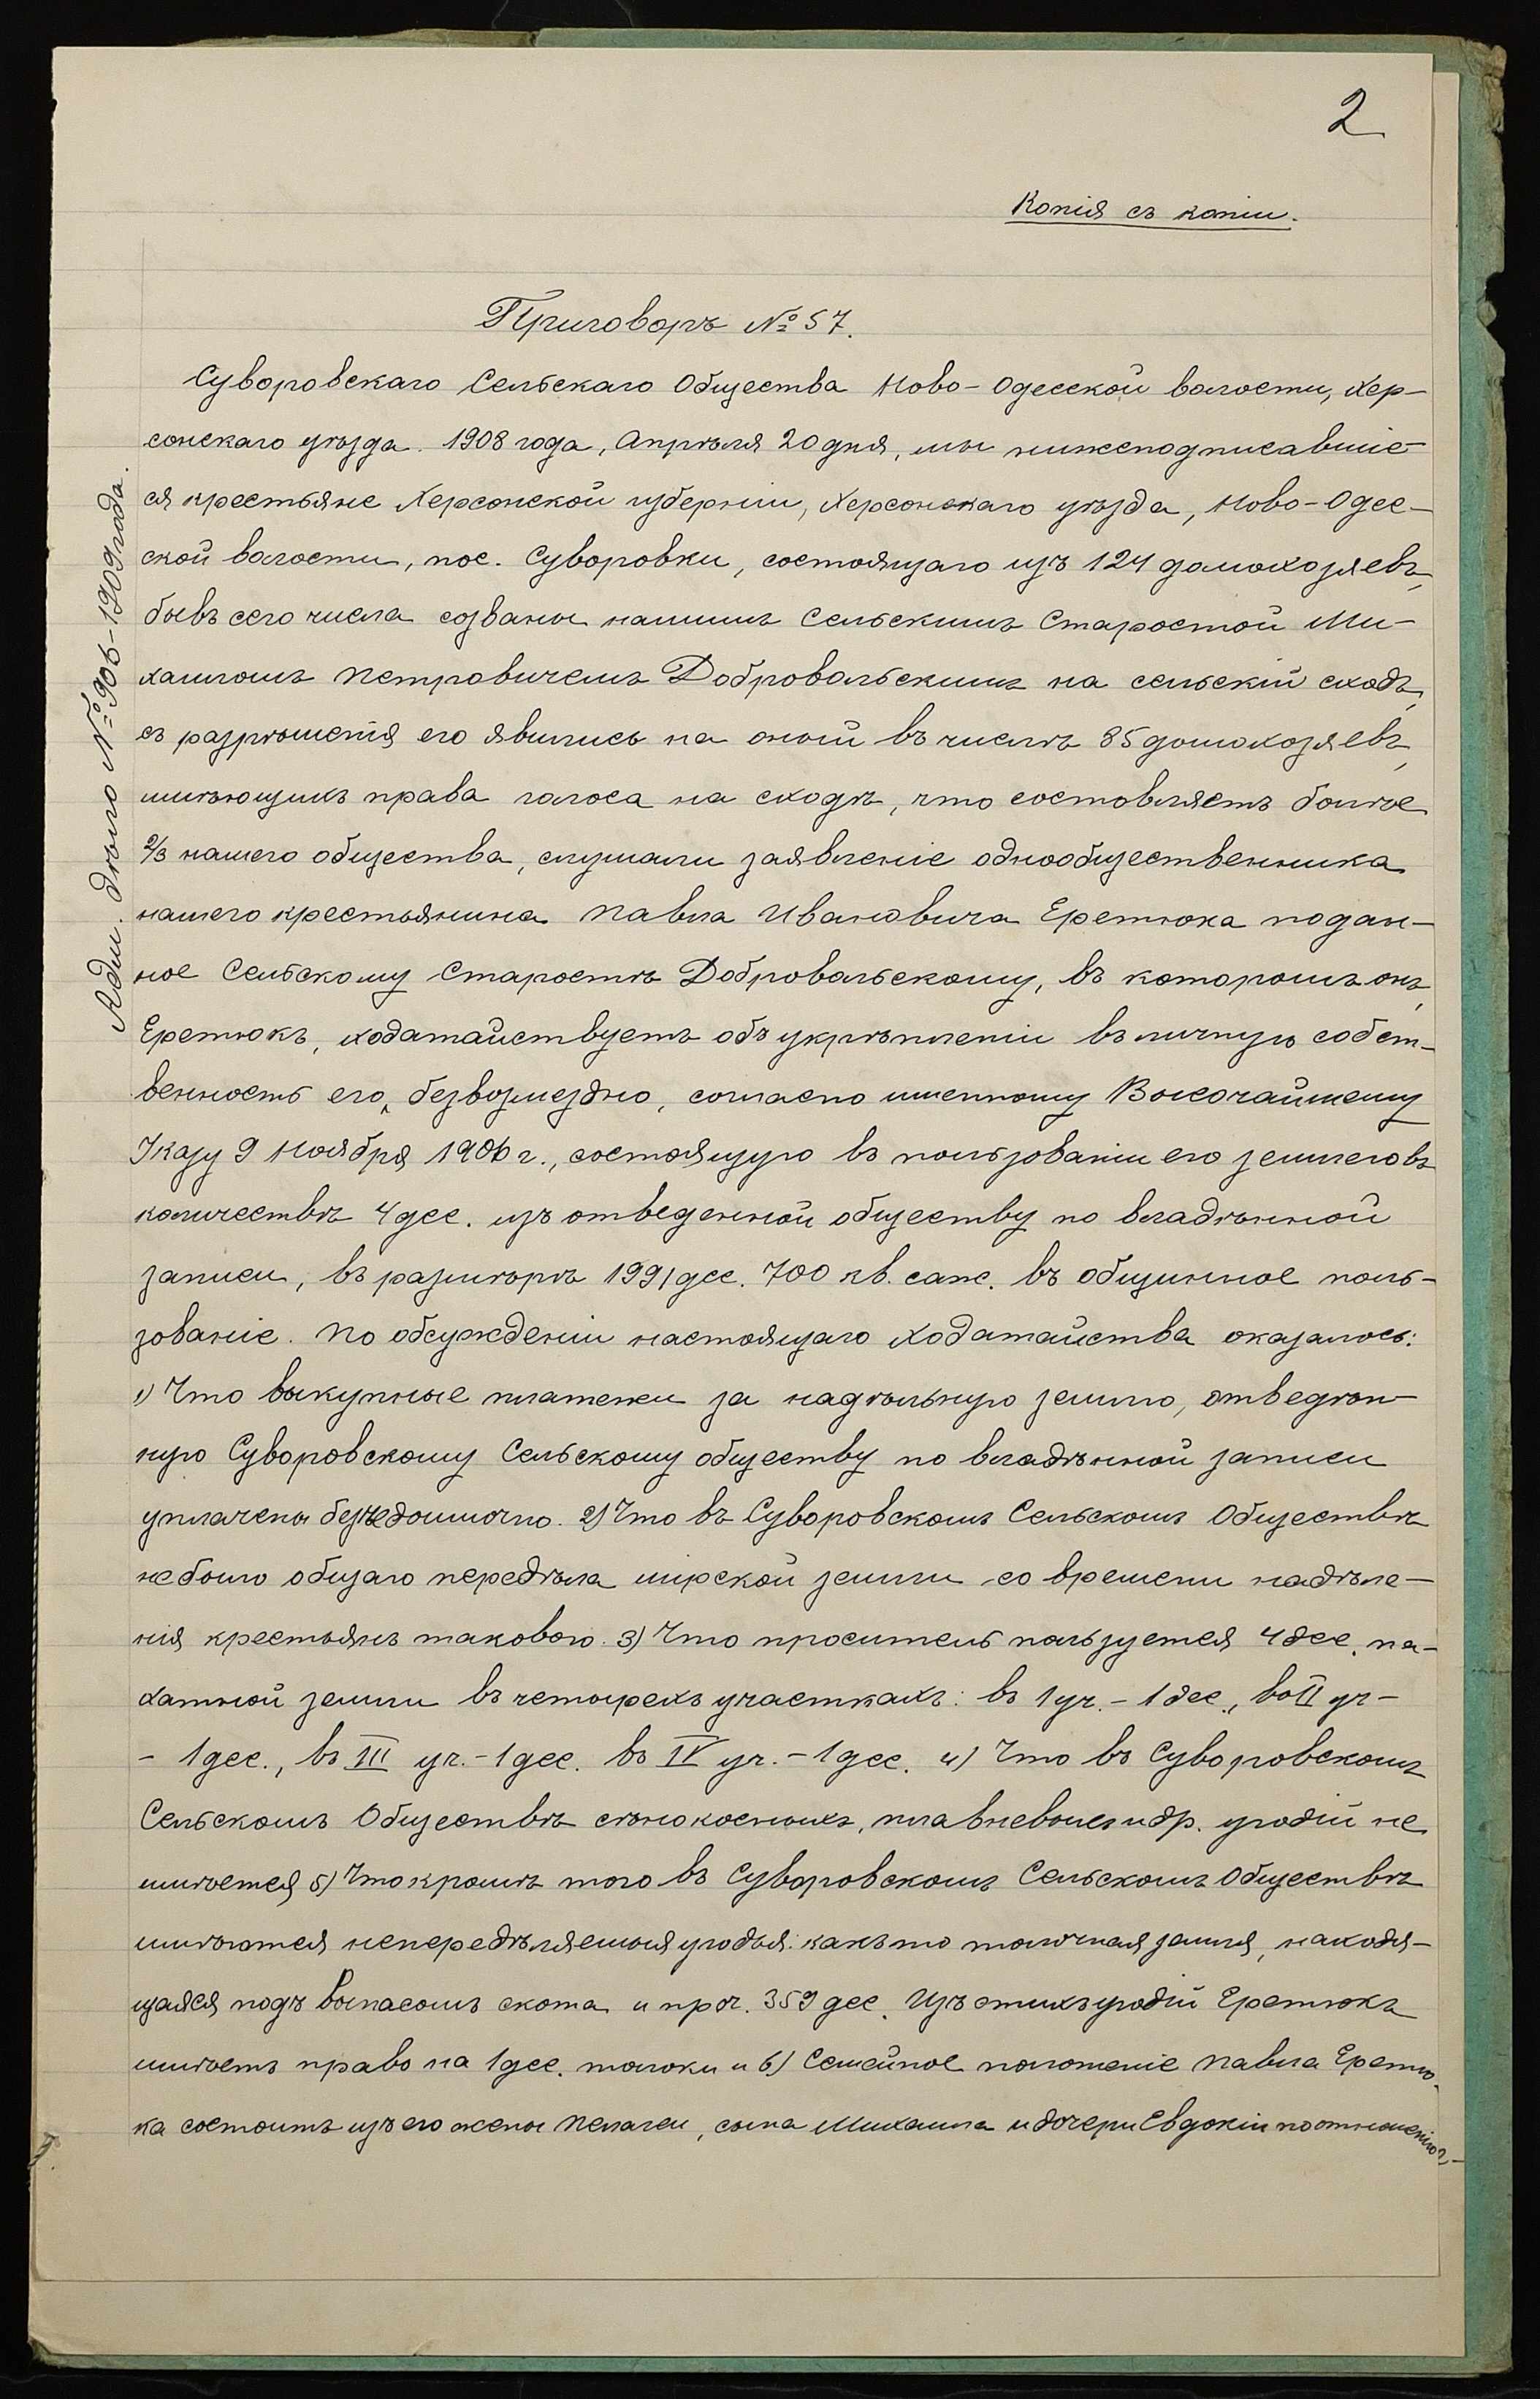 2
Копія съ копіи.
Адм. дѣло № 906-1909 года.
Приговоръ № 57.
Суворовскаго Сельскаго Общества Ново-Одесской волости, Хер-
сонскаго уѣзда. 1908 года, Апрѣля 20 дня, мы нижеподписавшіе-
ся крестьяне Херсонской губерніи, Херсонскаго уѣзда, Ново-Одес-
ской волости, пос. Суворовки, состоящаго изъ 124 домохозяевъ,
бывъ сего числа созваны нашимъ Сельскимъ Старостой Ми-
хаиломъ Петровичемъ Добровольскимъ на сельскій сходъ,
съ разрѣшенія его явились на оный въ числѣ 85 домохозяевъ,
имѣющихъ права голоса на сходѣ, что составляетъ болѣе
2/3 нашего общества, слушали заявленіе однообщественника
нашего крестьянина Павла Ивановича Еретюка подан-
ное Сельскому Старостѣ Добровольскому, въ которомъ онъ,
Еретюкъ, ходатайствуетъ объ укрѣпленіи въ личную собст-
венность его, безвозмездно, согласно именному Высочайшему
Указу 9 Ноября 1906 г., состоящую въ пользованіи его землего въ
количествѣ 4 дес. изъ отведенной обществу по владѣнной
записи, въ размѣрѣ 1991 дес. 700 кв. саж. въ общинное поль-
зованіе. По обсужденіи настоящаго ходатайства оказалось:
1) Что выкупные платежи за надѣльную землю, отведѣн-
ную Суворовскому Сельскому обществу по владѣнной записи
уплачены безнедоимочно. 2) Что въ Суворовскомъ Сельскомъ Обществѣ
не было общаго передѣла мірской земли со времени надѣле-
нія крестьянъ таковою. 3) Что проситель пользуется 4 дес. па-
хатной земли въ четырехъ участкахъ: въ 1 уч. - 1 дес., во II уч -
- 1 дес., въ III уч. - 1 дес. въ IV уч. - 1 дес. 4) Что въ Суворовскомъ
Сельскомъ Обществѣ сѣнокосныхъ, плавневыхъ и др. угодій не
имѣется 5) Что кромѣ того въ Суворовскомъ Сельскомъ Обществѣ
имѣются непередѣляемыя угодья: какъ то толочная земля, находя-
щаяся подъ выпасомъ скота и проч. 359 дес. Изъ этихъ угодій Еретюкъ
имѣетъ право на 1 дес. толоки и 6) Семейное положеніе Павла Еретю-
ка состоитъ изъ его жены Пелагеи, сына Михаила и дочери Евдокіи по отношенію